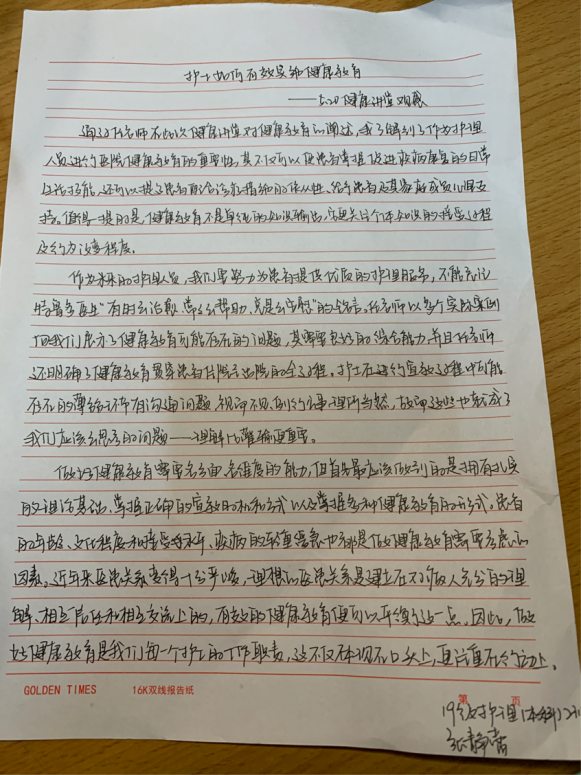 护士如何有效果地健康教育
——5.20健康讲堂观感
通过任老师本次健康讲堂对健康教育的阐述，我了解到了作为护理
人员进行医院健康教育的重要性，其不仅可以使患者掌握促进疾病康复的日常
生活技能，还可以提高患者配合治疗措施的依从性，给予患者及其家庭成员心理支
持。值得一提的是，健康教育不是单纯的知识输出，它更关注个体知识的接受过程
及行为改变程度。
作为未来的护理人员，我们要努力为患者提供优质的护理服务，不能忘记
特鲁多医生"有时去治愈，常常帮助，总是去安慰"的名言。任老师以多个实际案例
向我们展示了健康教育可能存在的问题，其需要良好的综合能力，并且任老师
还明确了健康教育贯穿患者住院到出院的全过程。护士在进行宣教过程中可能
存在的薄弱环节有沟通问题、视而不见、例行公事、理所当然，故而这些也就成了
我们应该去思考的问题——理解比准确更重要。
做好健康教育需要多方面、多维度的能力，但首先最应该做到的是拥有扎实
的理论基础，掌握正确的宣教时机和方式以及掌握多种健康教育的形式。患者
的年龄、文化程度和接受水平、疾病的轻重缓急也都是做好健康教育需要考虑的
因素。近年来医患关系变得一分严峻，理想的医患关系是建立在不带敌人充分的理
解、相互信任和相互交流上的，有效的健康教育便可以平缓这一点。因此，做
好健康教育是我们每一个护士的工作职责，这不仅体现在口头上，更注重在行动上。
GOLDEN TIMES 16K双线报告纸 第 页
19级护理(本科)
张静